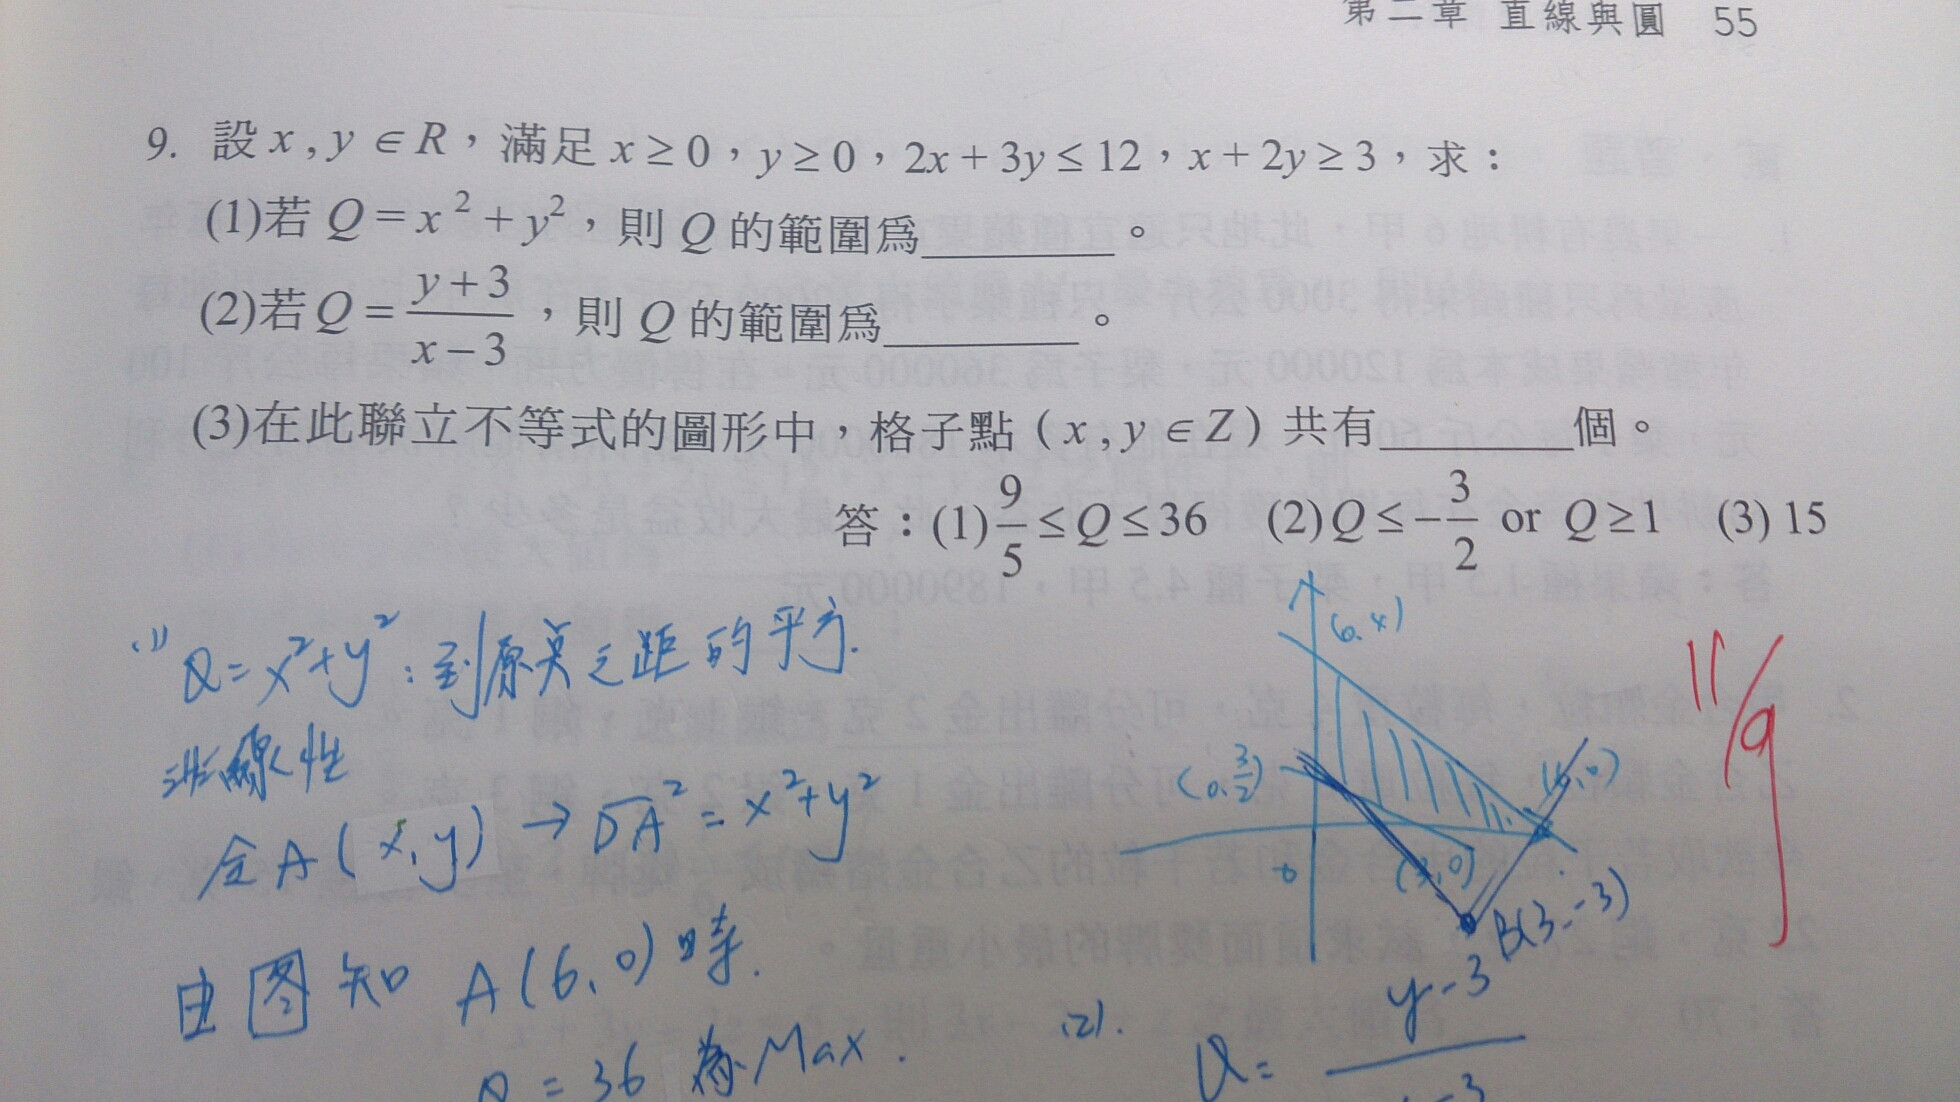 第二章 直線與圓 55
9. 設 x , y ∈ R，滿足 x ≥ 0，y ≥ 0，2x + 3y ≤ 12，x + 2y ≥ 3，求：
(1)若 Q = x² + y²，則 Q 的範圍爲________。
(2)若 Q = \frac{y+3}{x-3}，則 Q 的範圍爲________。
(3)在此聯立不等式的圖形中，格子點（x , y ∈ Z）共有________個。
答：(1) \frac{9}{5} ≤ Q ≤ 36 (2) Q ≤ -\frac{3}{2} or Q ≥ 1 (3) 15
(1) Q = x² + y² : 到原點之距的平方.
非線性
令A(x, y) → \overline{OA}² = x² + y²
由图知 A(6, 0) 時.
Q = 36 為 Max.
(0, 4)
(0, \frac{3}{2})
(6, 0)
(3, 0)
B(3, -3)
11/9
(2). Q = \frac{y-3}{-3}